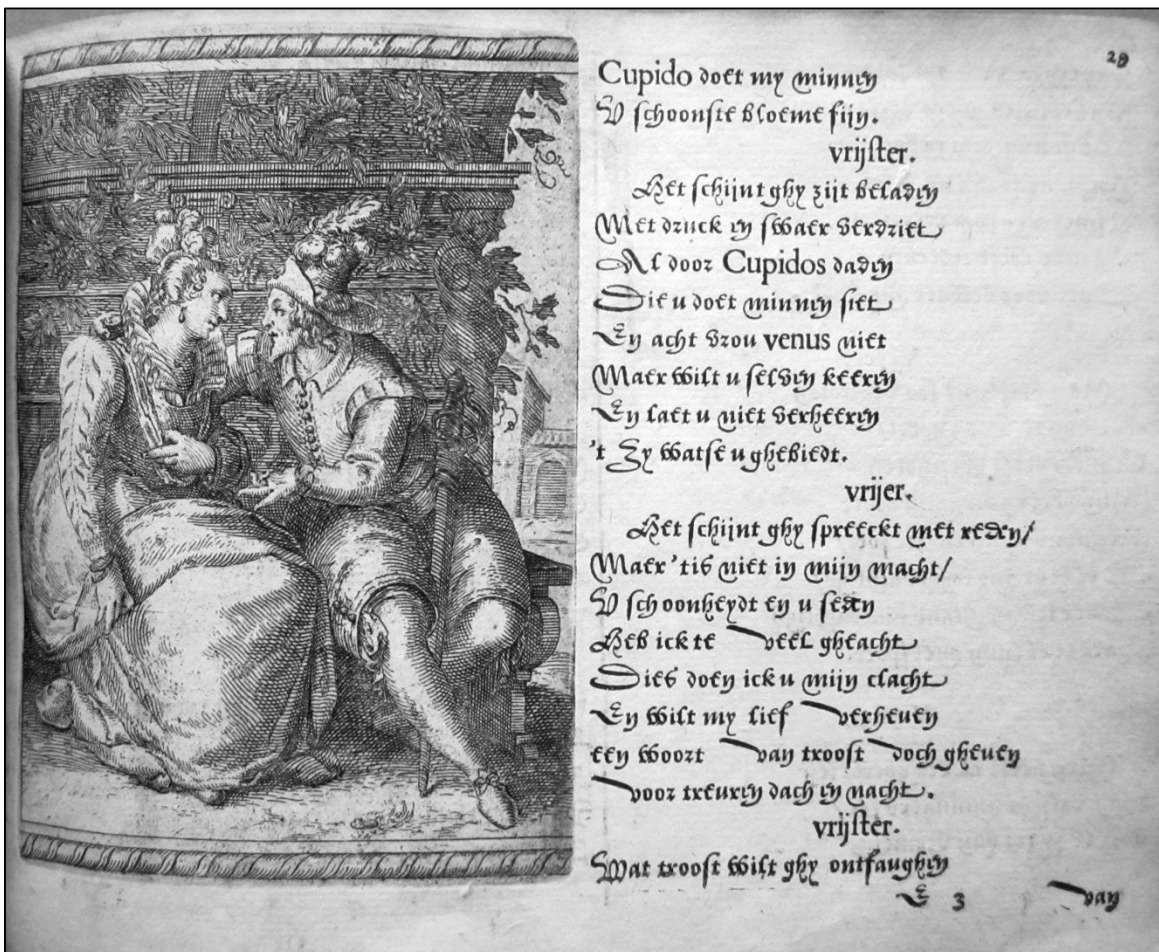 29
Cupido doet my minnen
V schoonste bloeme fijn.
vrijster.
Het schijnt ghy zijt beladen
Met druck en swaer verdriet
Al door Cupidos daden
Die u doet minnen siet
En acht vrou venus niet
Maer wilt u selven keeren
En laet u niet verheeren
't Zy watse u ghebiedt.
vrijer.
Het schijnt ghy spreeckt met reden/
Maer 'tis niet in mijn macht/
V schoonheydt en u seden
Heb ick te veel gheacht
Dies doen ick u mijn clacht
En wilt my lief verheuen
een woort van troost doch gheuen
voor treuren dach en nacht.
vrijster.
Wat troost wilt ghy ontfanghen
E 3 van